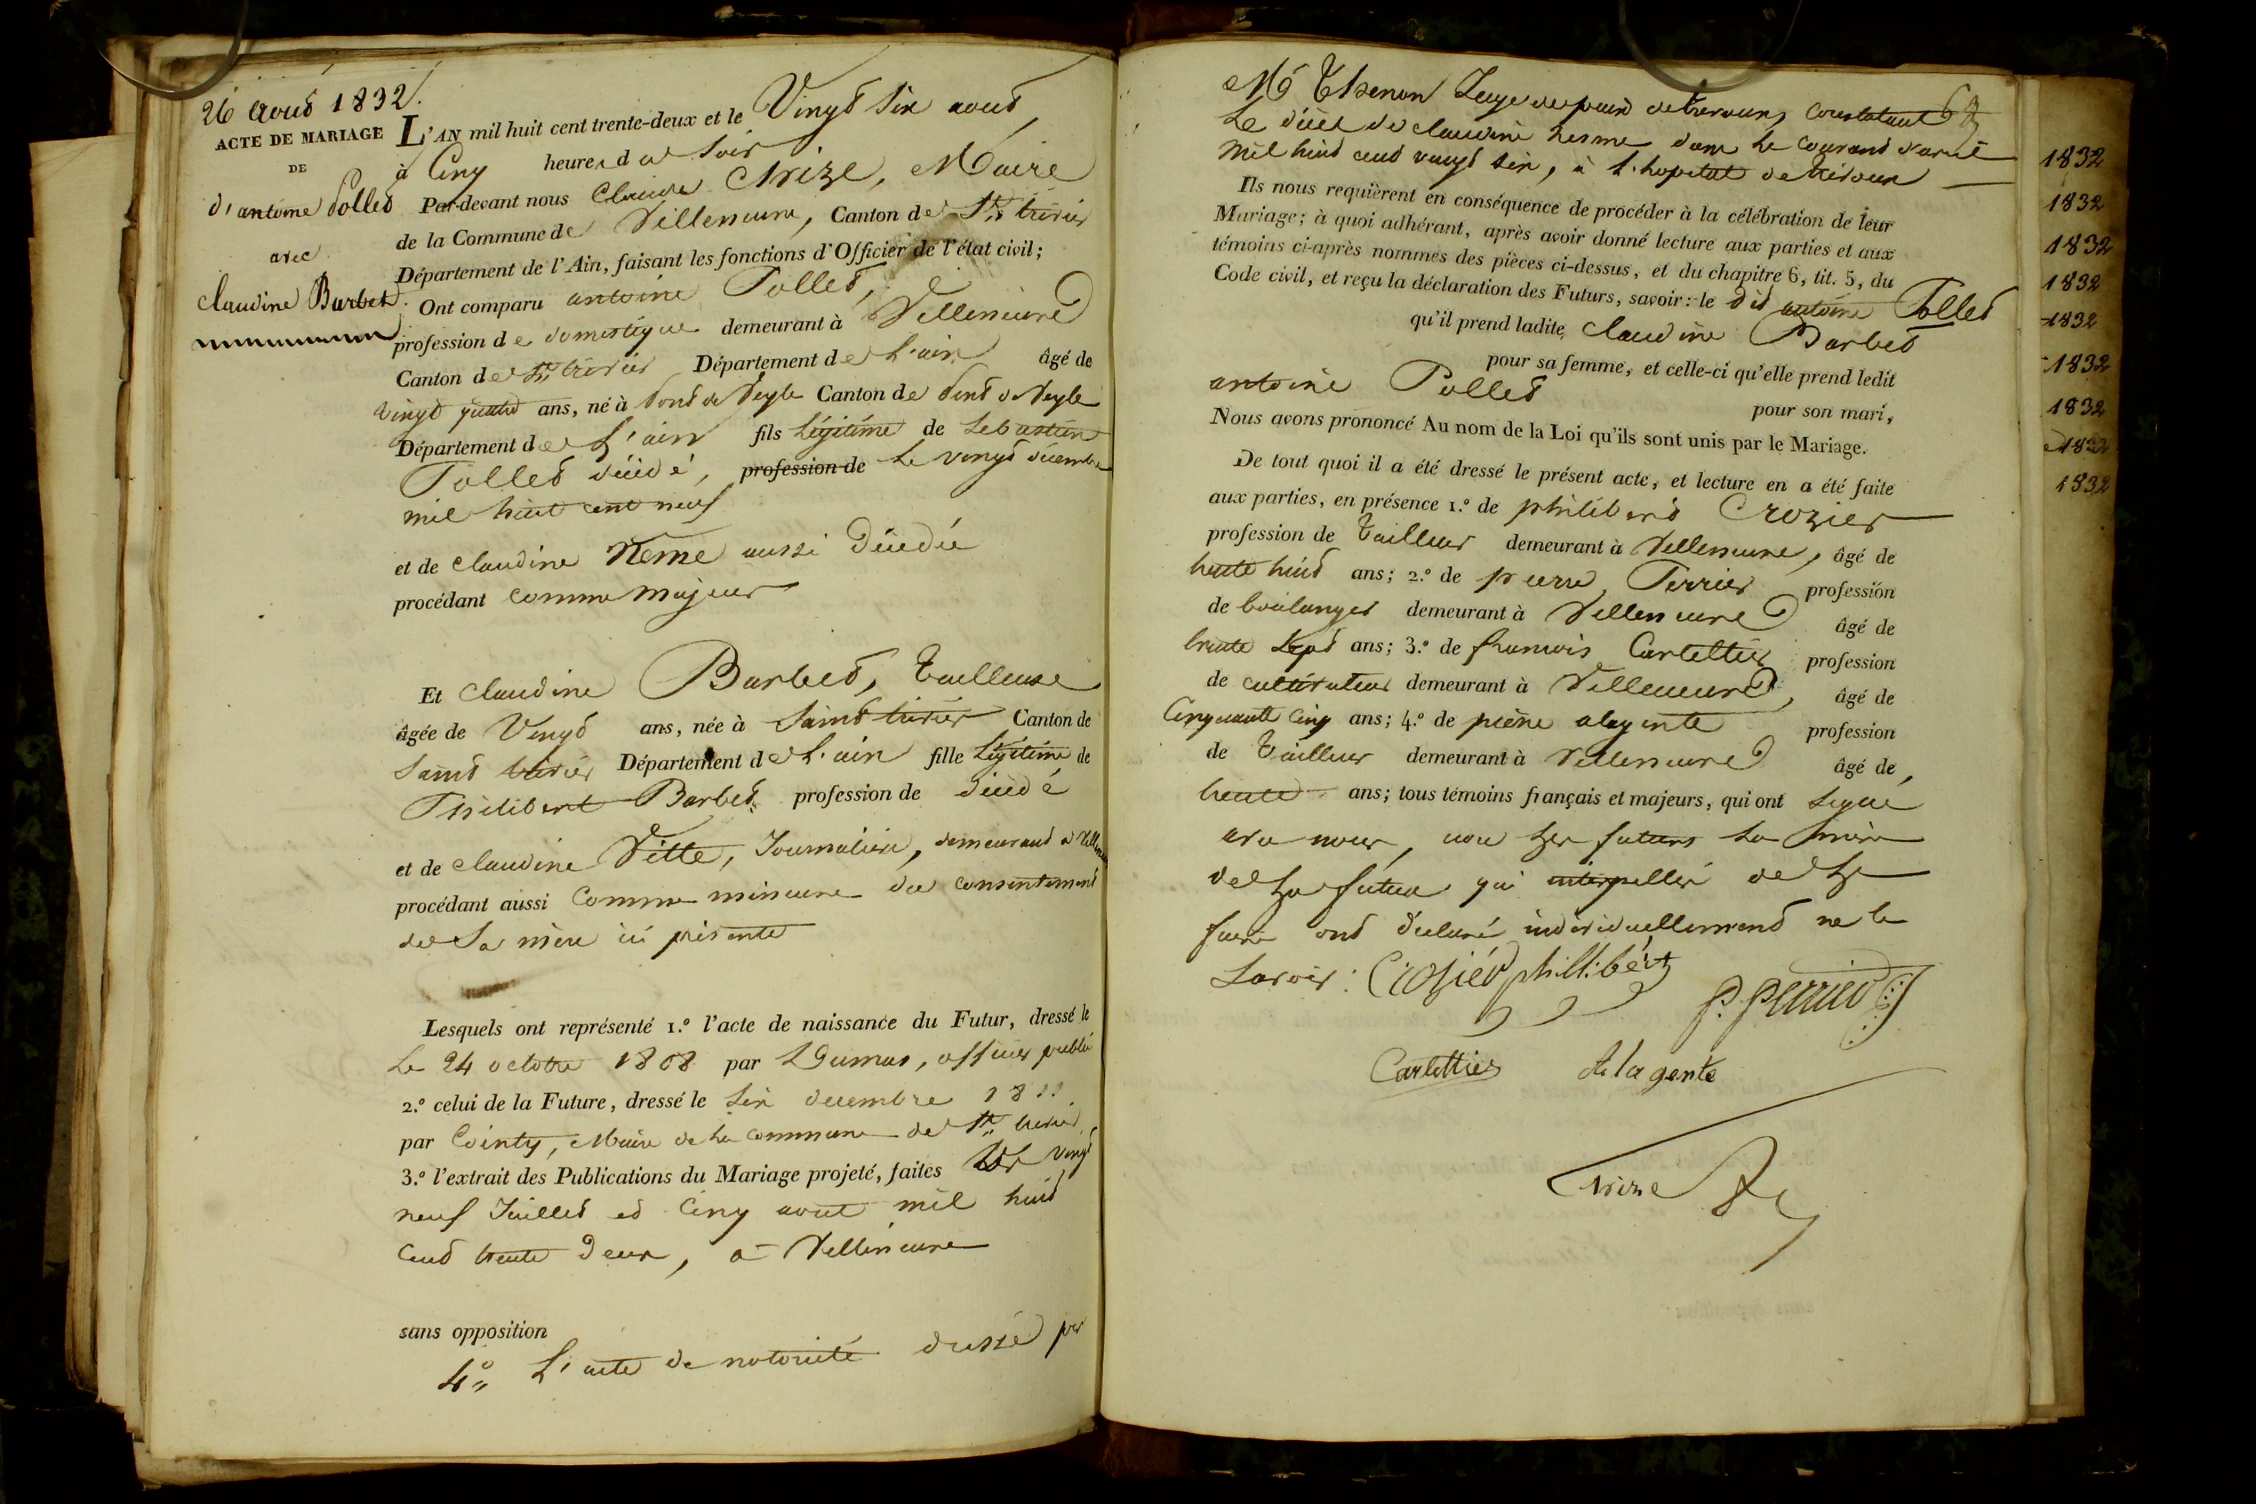 26 aoud 1832.
ACTE DE MARIAGE
DE
d'antoine Polled
avec
claudine Barbet
L'AN mil huit cent trente-deux et le Vingd six aoud,
à Cinq heures du Soir
Par-devant nous Claude Arize, Maire
de la Commune de Villeneuve, Canton de St. trivier
Département de l'Ain, faisant les fonctions d'Officier de l'état civil;
Ont comparu antoine Polled,
profession de domestique demeurant à Villeneuve
Canton de St. trivier Département de L'ain âgé de
vingt quatre ans, né à Pond de Veyle Canton de Pond de Veyle
Département de L'ain fils Légitime de Sebastien
Polled décédé, profession de Le vingd décembre
mil huit cent neuf
et de claudine Neme aussi Décédée
procédant comme Majeur
Et claudine Barbed, Tailleuse
âgée de Vingd ans, née à Saind trivier Canton de
Saind trivier Département de L'ain fille Légitime de
Philibert Barbed profession de décédé
et de claudine Vitte, Journalière, demeurand à
procédant aussi Comme mineure du consentement
de Sa mère ici présente
Lesquels ont représenté 1.º l'acte de naissance du Futur, dressé le
Le 24 octobre 1808 par Dumas, officier public
2.º celui de la Future, dressé le Six decembre 1811
par Cointy, Maire de La commune de St. trivier,
3.º l'extrait des Publications du Mariage projeté, faites Les Vingd
neuf Juilled ed Cinq aout mil huid
Cend trente Deux, a Villeneuve
sans opposition
4º L'acte de notoriété dressé par
Mé Thenon Juge de paix de trevoux, constatant
Le décès de claudine Nesme dans le Courand d'avril
Mil huid cend vingd six, à L'hopital de trévoux
Ils nous requièrent en conséquence de procéder à la célébration de leur
Mariage; à quoi adhérant, après avoir donné lecture aux parties et aux
témoins ci-après nommés des pièces ci-dessus, et du chapitre 6, tit. 5, du
Code civil, et reçu la déclaration des Futurs, savoir: le dit antoine Polled
qu'il prend ladite claudine Barbed
pour sa femme, et celle-ci qu'elle prend ledit
antoine Polled pour son mari,
Nous avons prononcé Au nom de la Loi qu'ils sont unis par le Mariage.
De tout quoi il a été dressé le présent acte, et lecture en a été faite
aux parties, en présence 1.º de philiberd Crozier
profession de Tailleur demeurant à Villeneuve, âgé de
trente huid ans; 2.º de pierre Perrier profession
de boulanger demeurant à Villeneuve âgé de
trente Sepd ans; 3.º de francois Carlettier profession
de cultivateur demeurant à Villeneuve, âgé de
Cinquante Cinq ans; 4.º de pierre alagente profession
de Tailleur demeurant à Villeneuve âgé de,
trente ans; tous témoins français et majeurs, qui ont Signé
avec nous, non Les futurs La mère
de La future qui interpellés de Le
faire ond déclaré individuellemend ne le
Savoir: Croziér phillibért
P. Perrier
Carlettier alagente
Arize
1832
1832
1832
1832
1832
1832
1832
1832
1832